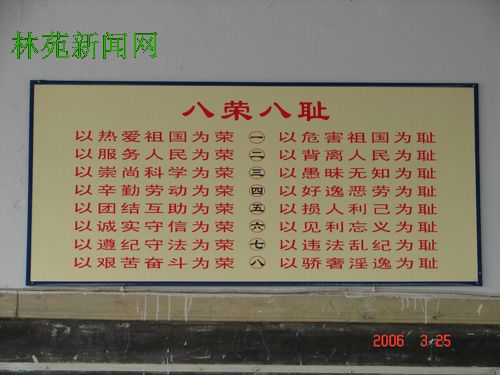 林苑新闻网
八荣八耻
以热爱祖国为荣 一 以危害祖国为耻
以服务人民为荣 二 以背离人民为耻
以崇尚科学为荣 三 以愚昧无知为耻
以辛勤劳动为荣 四 以好逸恶劳为耻
以团结互助为荣 五 以损人利己为耻
以诚实守信为荣 六 以见利忘义为耻
以遵纪守法为荣 七 以违法乱纪为耻
以艰苦奋斗为荣 八 以骄奢淫逸为耻
2006 3 25